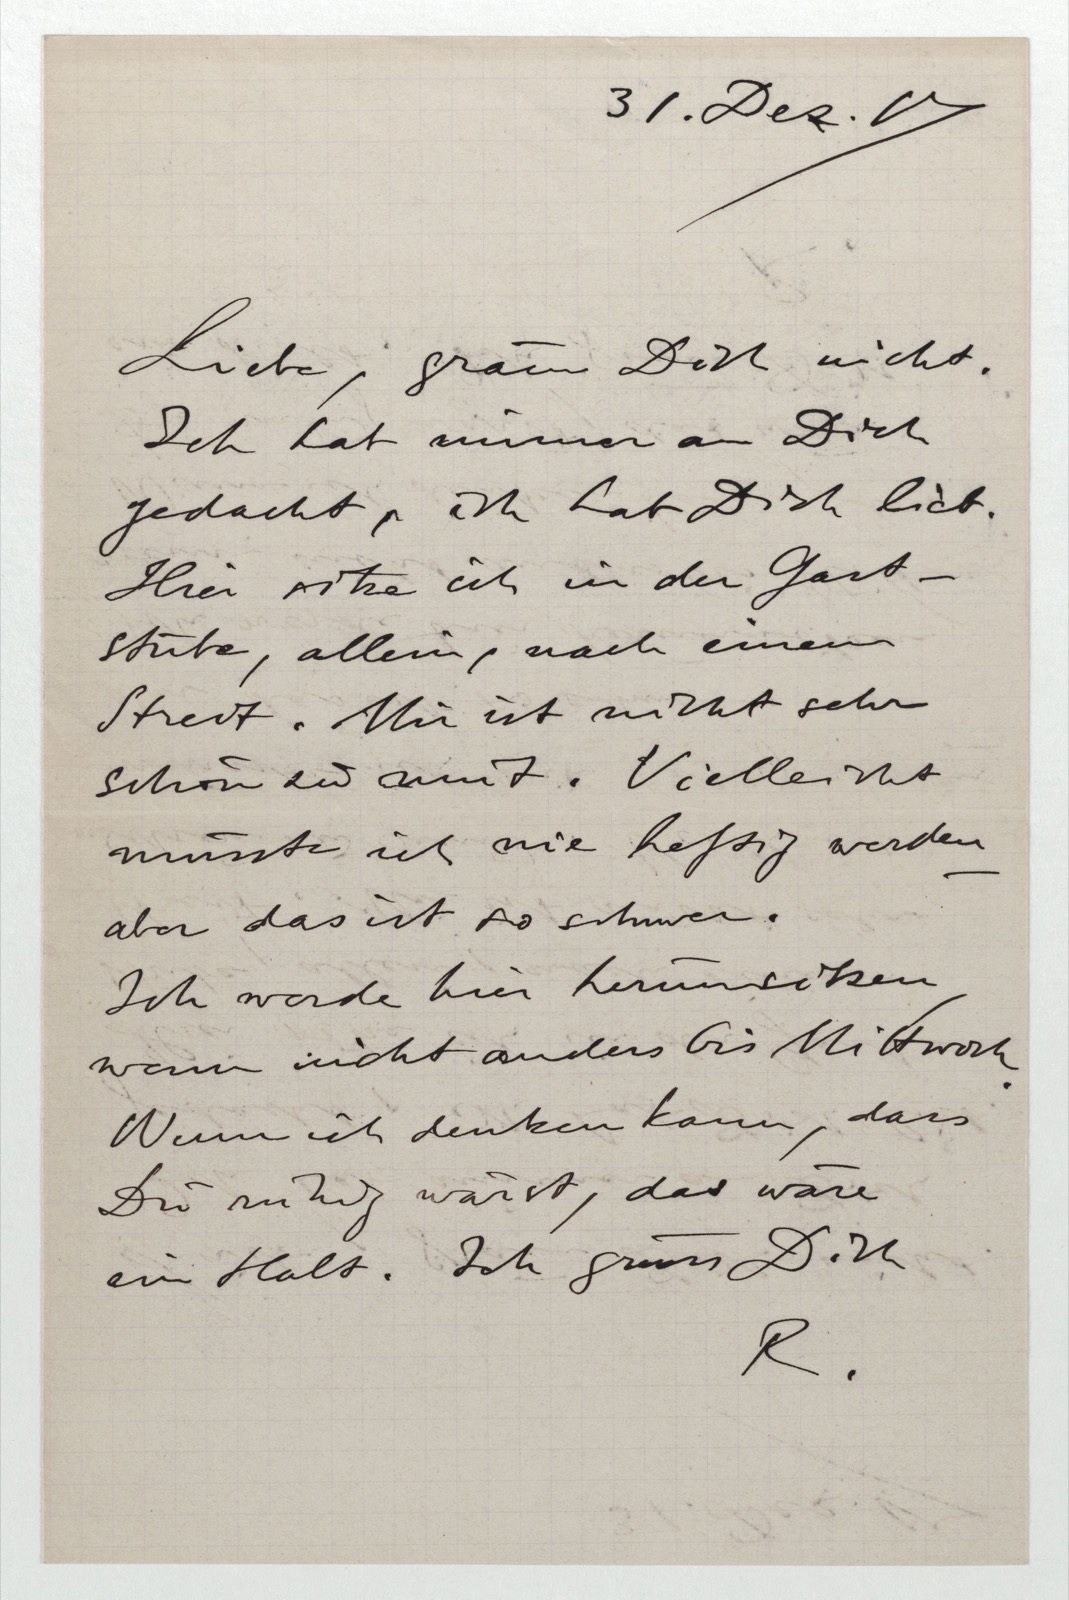 31. Dez. 17
Liebe, gräm Dich nicht.
Ich hab immer an Dich
gedacht, ich hab Dich lieb.
Hier sitze ich in der Gast-
stube, allein, nach einem
Streit. Mir ist nicht sehr
schön zu mut. Vielleicht
müsste ich nie heftig werden
aber das ist so schwer.
Ich werde hier herumsitzen
wenn nicht anders bis Mittwoch.
Wenn ich denken kann, dass
Du ruhig wärst, das wäre
ein Halt. Ich grüss Dich
R.